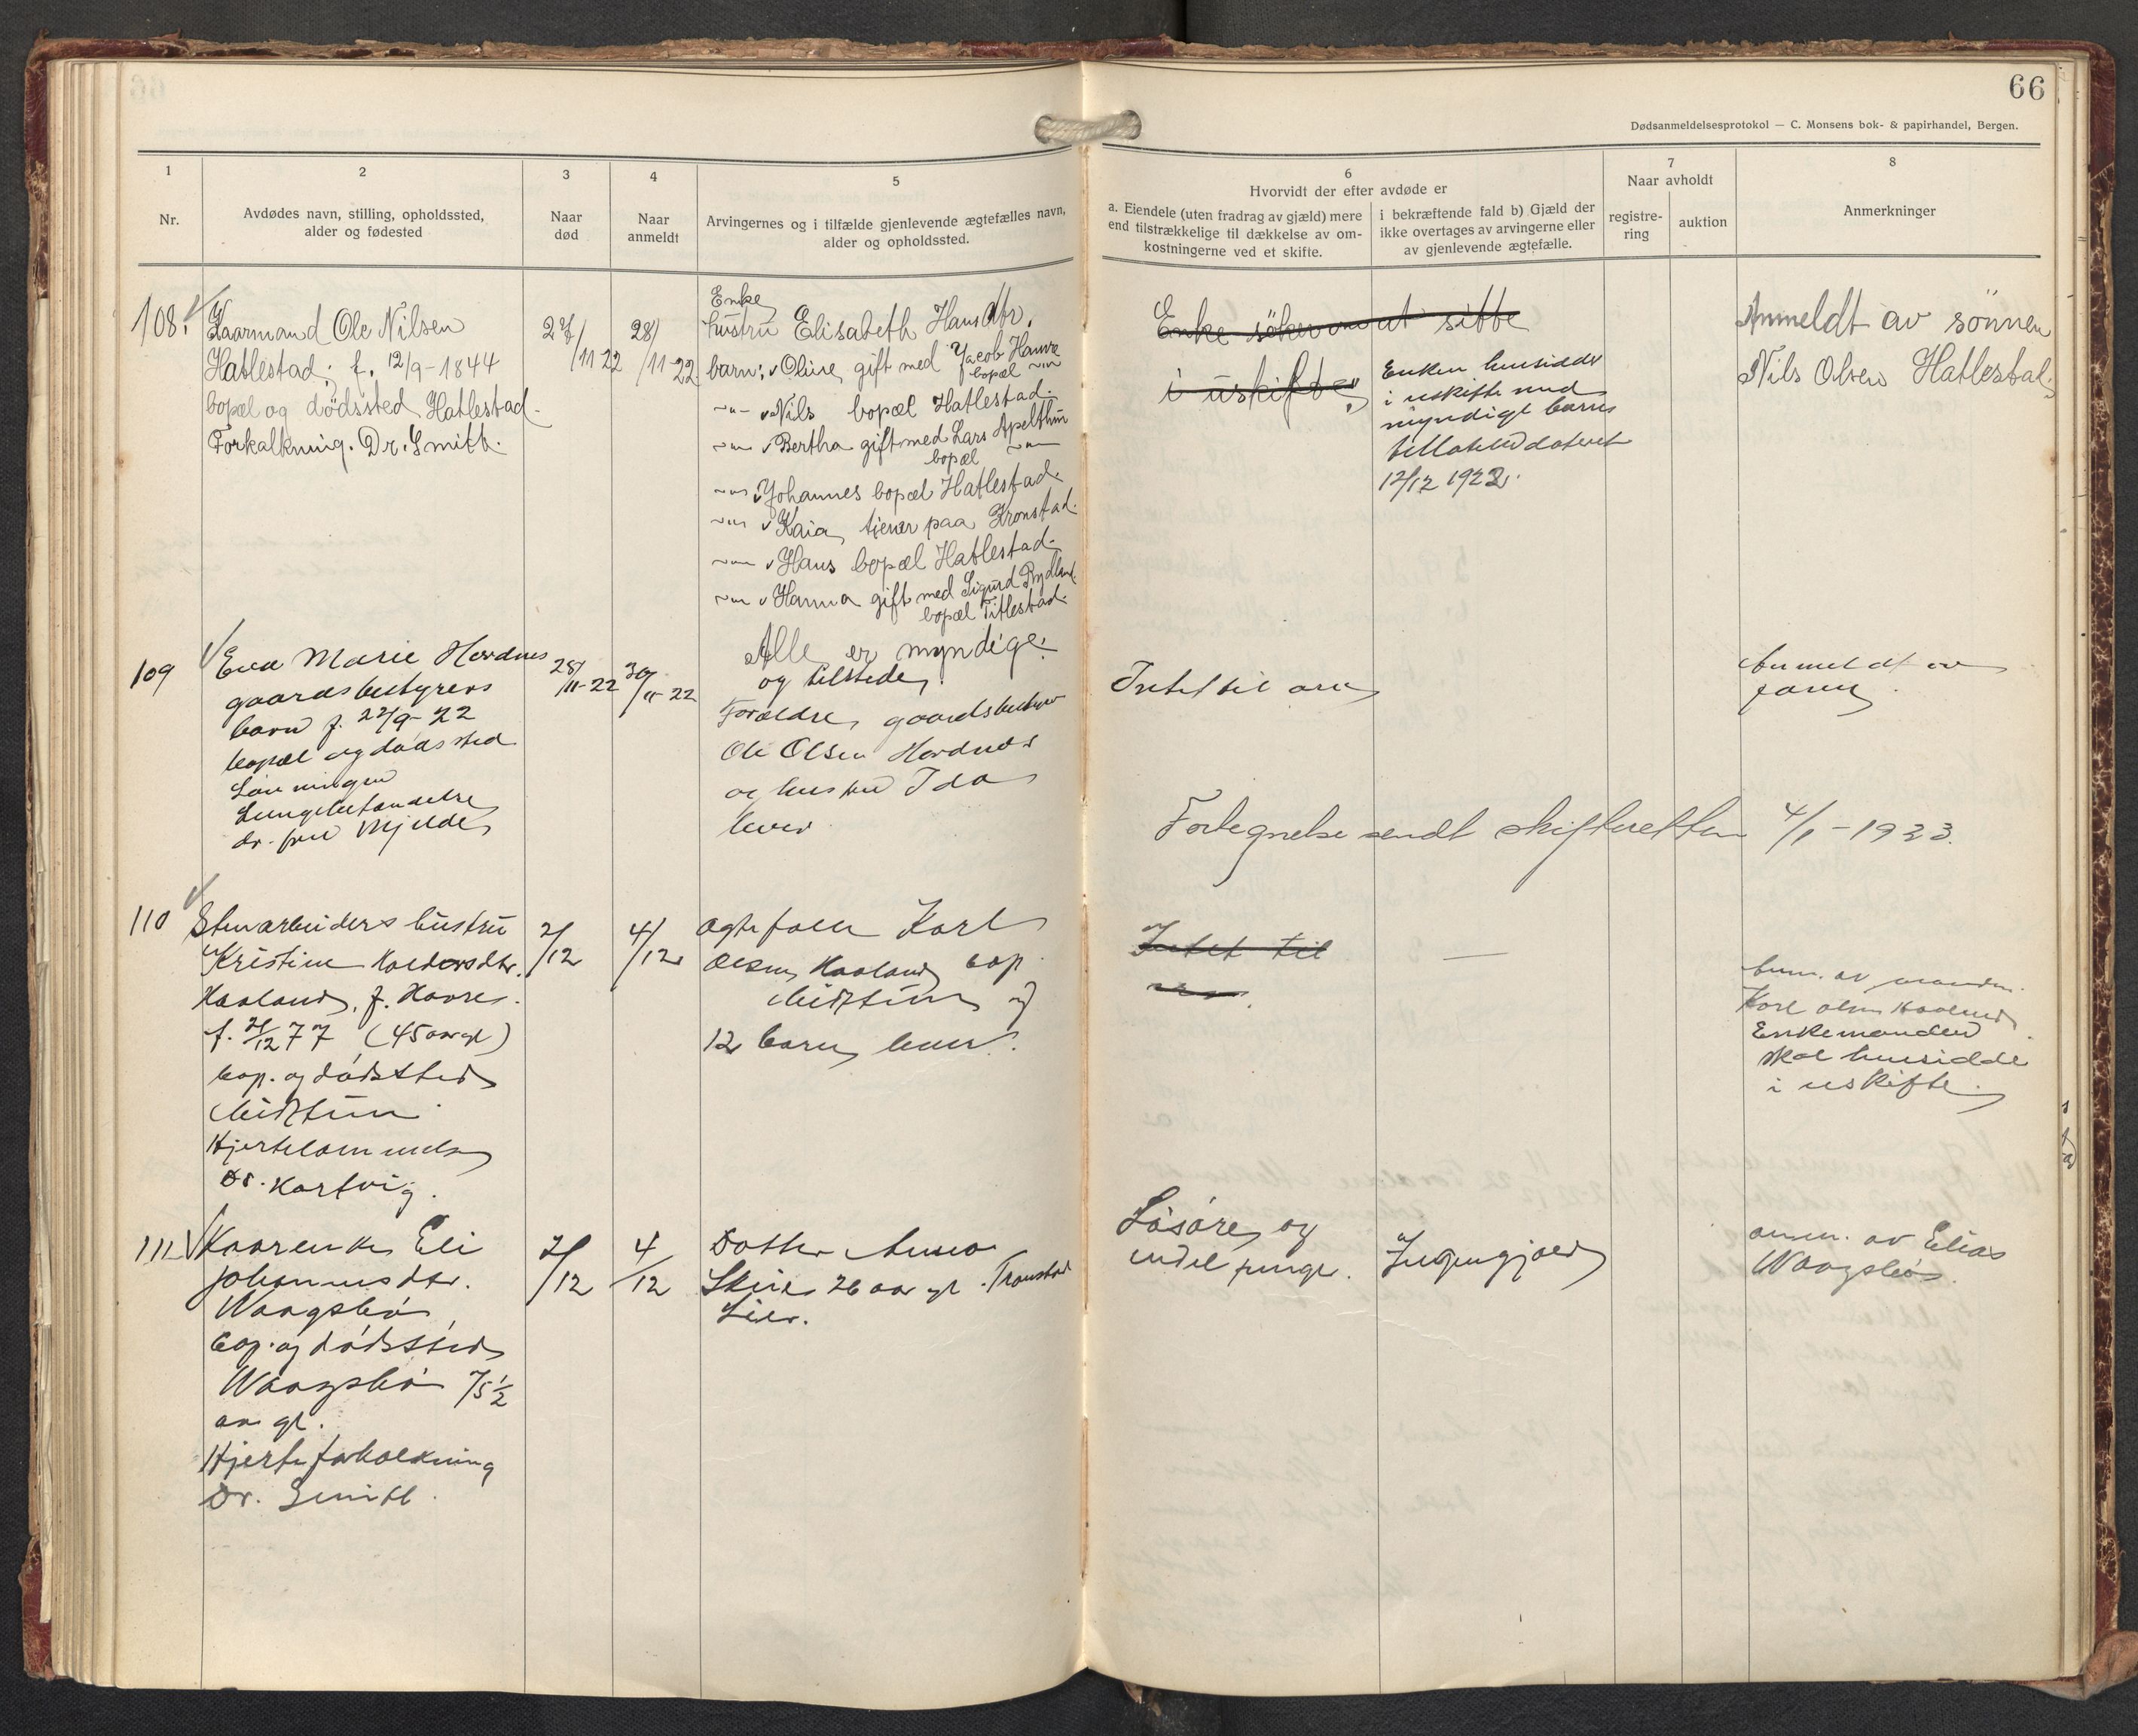 66
Dødsanmeldelsesprotokol — C. Monsens bok- & papirhandel, Bergen.
1
Nr.
2
Avdødes navn, stilling, opholdssted,
alder og fødested
3
Naar
død
4
Naar
anmeldt
5
Arvingernes og i tilfælde gjenlevende ægtefælles navn,
alder og opholdssted.
6
Hvorvidt der efter avdøde er
a. Eiendele (uten fradrag av gjæld) mere
end tilstrækkelige til dækkelse av om-
kostningerne ved et skifte.
i bekræftende fald b) Gjæld der
ikke overtages av arvingerne eller
av gjenlevende ægtefælle.
7
Naar avholdt
registre-
ring
auktion
8
Anmerkninger
108.
Kaarmand Ole Nilsen
Hatlestad; f. 12/9-1844
bopæl og dödssted Hatlestad.
Forkalkning. Dr. Smith.
27/11-22
28/11-22
Enke
hustru Elisabeth Hansdtr.
barn: Oline gift med Jacob Hauge
bopæl
Nils bopæl Hatlestad.
Bertha gift med Lars Apelthun
bopæl
Johannes bopæl Hatlestad.
Kaia, tjener paa Kronstad.
Hans bopæl Hatlestad.
Hanna gift med Sigurd Rydland
bopæl Titlestad.
Alle er myndige.
og tilstede,
Enke söker om at sitte
i uskifte,
Enken hensidder
i uskifte med
myndige barns
tillatelse dateret
12/12 1922.
Anmeldt av sönnen
Nils Olsen Hatlestad.
109
Eva Marie Hordnes
gaardsbestyrers
barn f. 22/9-22
bopæl og dødssted
Lønningen
Lungebetændelse
dr. fru Mjelde
28/11-22
30/11-22
Forældre, gaardsbestyrer
Ole Olsen Hordnes
og hustru Ida
lever
Intet til arv
Anmeldt av
faren
Fortegnelse sendt skifteretten 4/1-1923.
110
Stenarbeiders hustru
Kristine
Haaland, f. Havre.
f. 2/12 77 (45 aar gl)
bop. og dødssted
Midttun
Hjertelammelse
Dr. Kartvig.
2/12
4/12
ægtefælle Karl
Olsen Haaland, bop.
Midttun og
12 barn lever.
Intet til
arv.
—
Anm. av manden
Karl Olsen Haaland
Enkemanden
skal hensidde
i uskifte.
111
Kaarenke Eli
Johannesdtr.
Waagsbø,
bop. og dødssted
Waagsbø 75 1/2
aar gl.
Hjerteforkalkning
Dr. Smith.
2/12
4/12
Datter Anna
26 aar gl.
Lier.
Løsøre og
endel penge.
Ingen gjæld
anm. av Elias
Waagsbø.